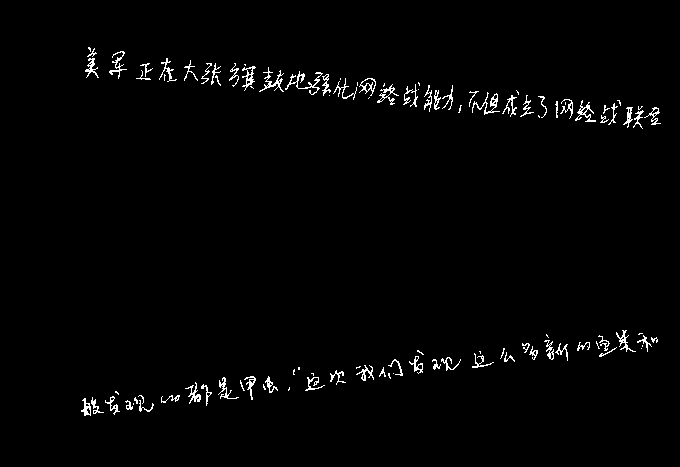 美军正在大张旗鼓地强化网络战能力,不但成立了网络战联合
般发现的都是甲虫,“这次我们发现这么多新的鱼类和